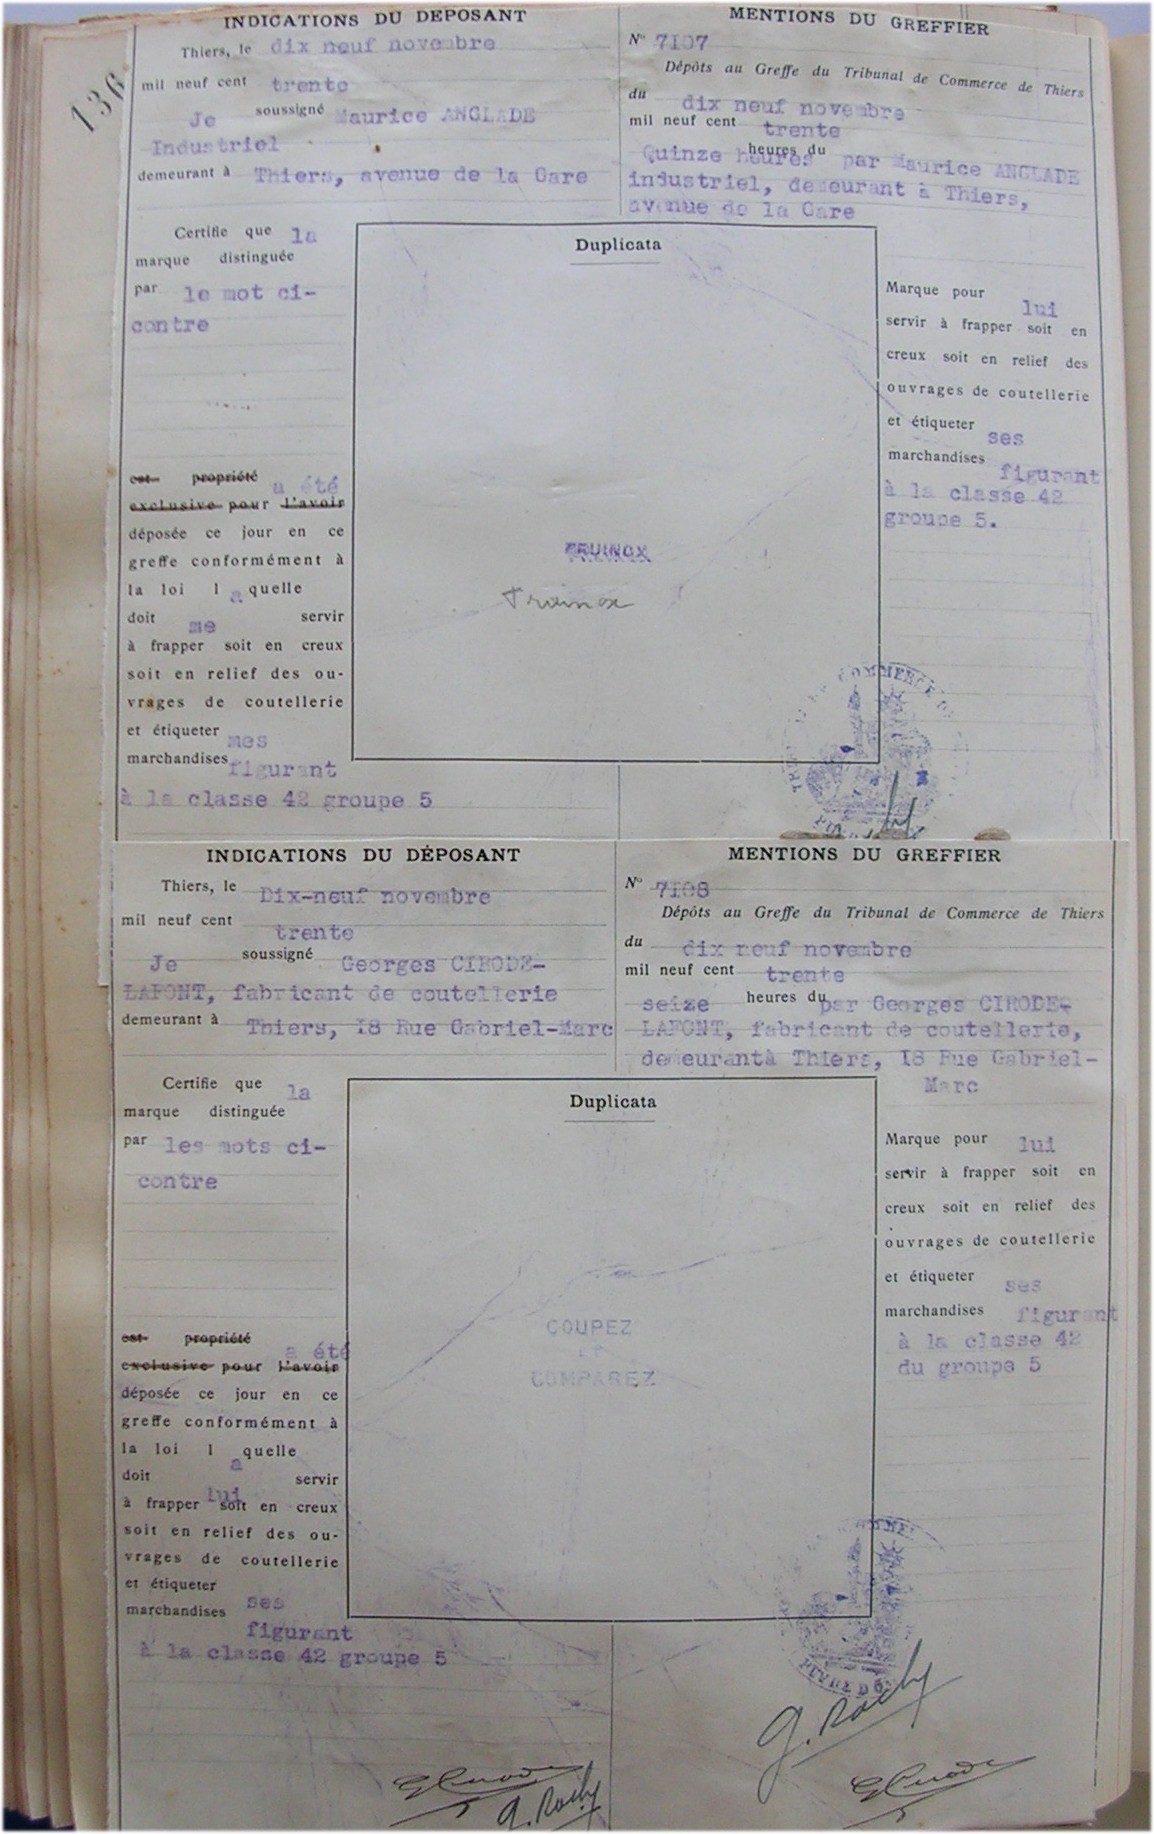 136
INDICATIONS DU DÉPOSANT
Thiers, le dix neuf novembre
mil neuf cent trente
Je soussigné Maurice ANGLADE
Industriel
demeurant à Thiers, avenue de la Gare
MENTIONS DU GREFFIER
N° 7I07
Dépôts au Greffe du Tribunal de Commerce de Thiers
du dix neuf novembre
mil neuf cent trente
Quinze heures heures du par Maurice ANGLADE
industriel, demeurant à Thiers,
avenue de la Gare
Certifie que la
marque distinguée
par le mot ci-
contre
est propriété a été
exclusive pour l'avoir
déposée ce jour en ce
greffe conformément à
la loi l a quelle
doit me servir
à frapper soit en creux
soit en relief des ou-
vrages de coutellerie
et étiqueter mes
marchandises figurant
à la classe 42 groupe 5
Duplicata
TRUINOX
Truinox
Marque pour lui
servir à frapper soit en
creux soit en relief des
ouvrages de coutellerie
et étiqueter ses
marchandises figurant
à la classe 42
groupe 5.
COMMERCE
INDICATIONS DU DÉPOSANT
Thiers, le Dix-neuf novembre
mil neuf cent trente
Je soussigné Georges CIRODE-
LAFONT, fabricant de coutellerie
demeurant à Thiers, I8 Rue Gabriel-Marc
MENTIONS DU GREFFIER
N° 7I08
Dépôts au Greffe du Tribunal de Commerce de Thiers
du dix neuf novembre
mil neuf cent trente
seize heures du par Georges CIRODE-
LAFONT, fabricant de coutellerie,
demeurantà Thiers, I8 Rue Gabriel-
Marc
Certifie que la
marque distinguée
par les mots ci-
contre
est propriété a été
exclusive pour l'avoir
déposée ce jour en ce
greffe conformément à
la loi l a quelle
doit lui servir
à frapper soit en creux
soit en relief des ou-
vrages de coutellerie
et étiqueter ses
marchandises figurant
à la classe 42 groupe 5
Duplicata
COUPEZ
ET
COMPAREZ
Marque pour lui
servir à frapper soit en
creux soit en relief des
ouvrages de coutellerie
et étiqueter ses
marchandises figurant
à la classe 42
du groupe 5
PUY DE DÔ